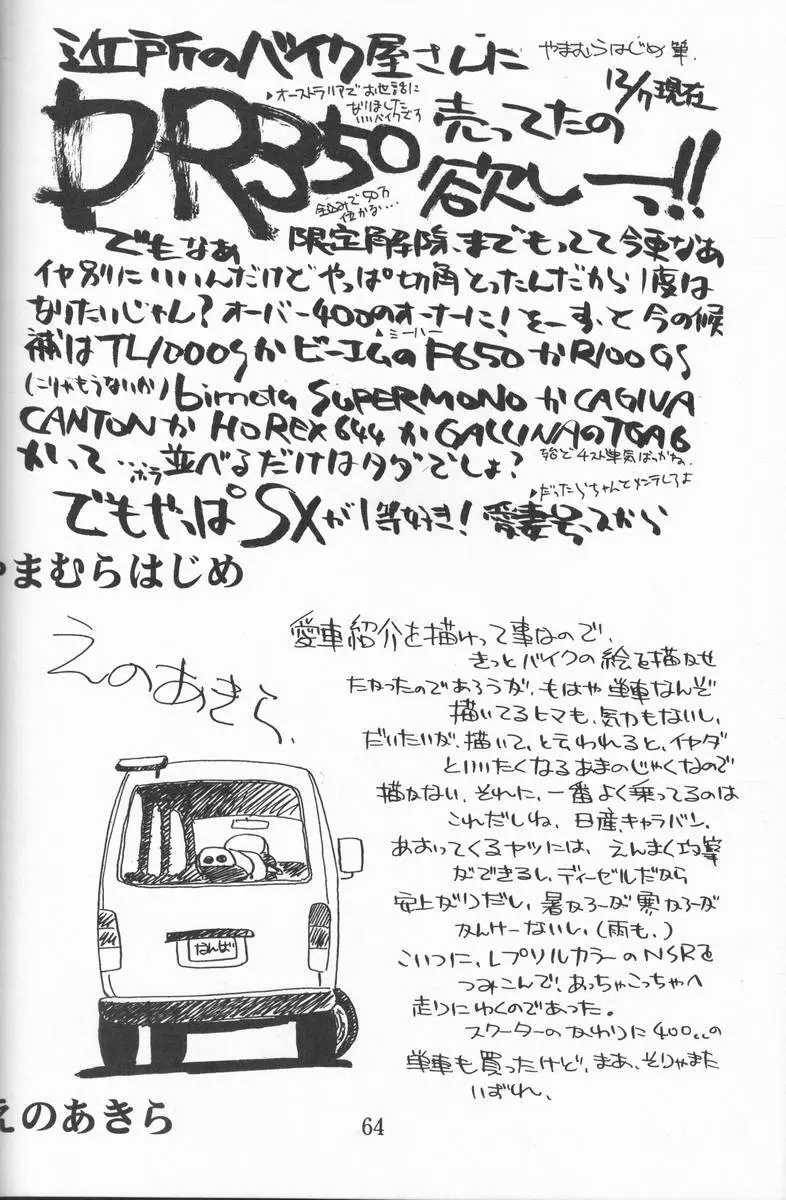 近所のバイク屋さんに
やまむらはじめ 筆
12/17現在
▶オーストラリアでお世話に
なりました
いいバイクです
DR350 売ってたの
全込みで50万
位かな…
欲しーっ!!
でもなぁ 限定解除、までもってて今更なぁ
イヤ別にいいんだけどやっぱ切角とったんだから1度は
なりたいじゃん?オーバー400のオーナーに!をーすと今の候
▲ミーハー
補はTL1000SかビーエムのF650かR100GS
(こりゃもうないか)bimota SUPERMONOかCAGIVA
CANYONか HOREX644 かGALLINAのTGA6
かって…ホラ並べるだけはタダでしょ?
でもやっぱSXが1等好き!愛妻号っスから
▶だったらちゃんとメンテしろよ
やまむらはじめ
えのあきら
愛車紹介を描けって事なので、
きっとバイクの絵を描かせ
たかったのであろうが、もはや単車なんぞ
描いてるヒマも、気力もないし、
だいたいが、描いて、と云われると、イヤダ
といいたくなるあまのじゃくなので
描かない。それに、一番よく乗ってるのは
これだしね、日産、キャラバン。
あおってくるヤツには、えんまく攻撃
ができるし、ディーゼルだから
安上がりだし、暑かろーが寒かろーが
かんけーないし、(雨も。)
こいつに、レプソルカラーのNSRを
つみこんで、あっちゃこっちゃへ
走りにゆくのであった。
スクーターのかわりに400ccの
単車も買ったけど、まあ、そりゃまた
いずれ。
なんば
えのあきら
64